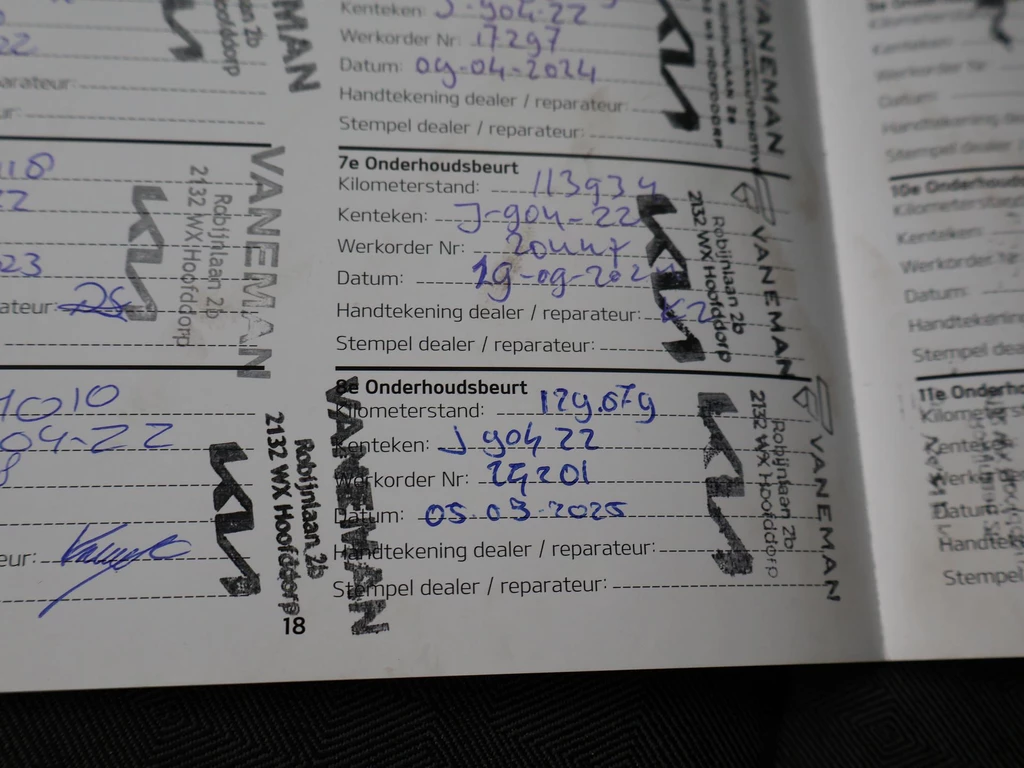 22
MAN
2b
Hoofddorp
Kenteken: J-904-22
Werkorder Nr: 17297
Datum: 09-04-2024
Handtekening dealer / reparateur:
Stempel dealer / reparateur:
VANEMAN
118
22
23
ateur:
KIA
VANEMAN
Robijnlaan 2b
2132 WX Hoofddorp
7e Onderhoudsbeurt
Kilometerstand: 113934
Kenteken: J-904-22
Werkorder Nr: 20447
Datum: 19-09-202
Handtekening dealer / reparateur:
Stempel dealer / reparateur:
KIA
VANEMAN
Robijnlaan 2b
2132 WX Hoofddorp
1010
04-22
eur:
KIA
VANEMAN
Robijnlaan 2b
2132 WX Hoofddorp
18
8e Onderhoudsbeurt
Kilometerstand: 129.079
Kenteken: J 904 22
Werkorder Nr:
Datum: 05.03-2025
Handtekening dealer / reparateur:
Stempel dealer / reparateur:
KIA
VANEMAN
Robijnlaan 2b
2132 WX Hoofddorp
Kilometerstand
Kenteken:
Werkorder Nr:
Datum:
Handtekening
Stempel dealer
10e Onderhouds
Kilometerstand
Kenteken:
Werkorder Nr
Datum:
Handtekening
Stempel dea
11e Onderho
Kilometerst
Kenteken
Werkor
Datum
Handteke
Stempel